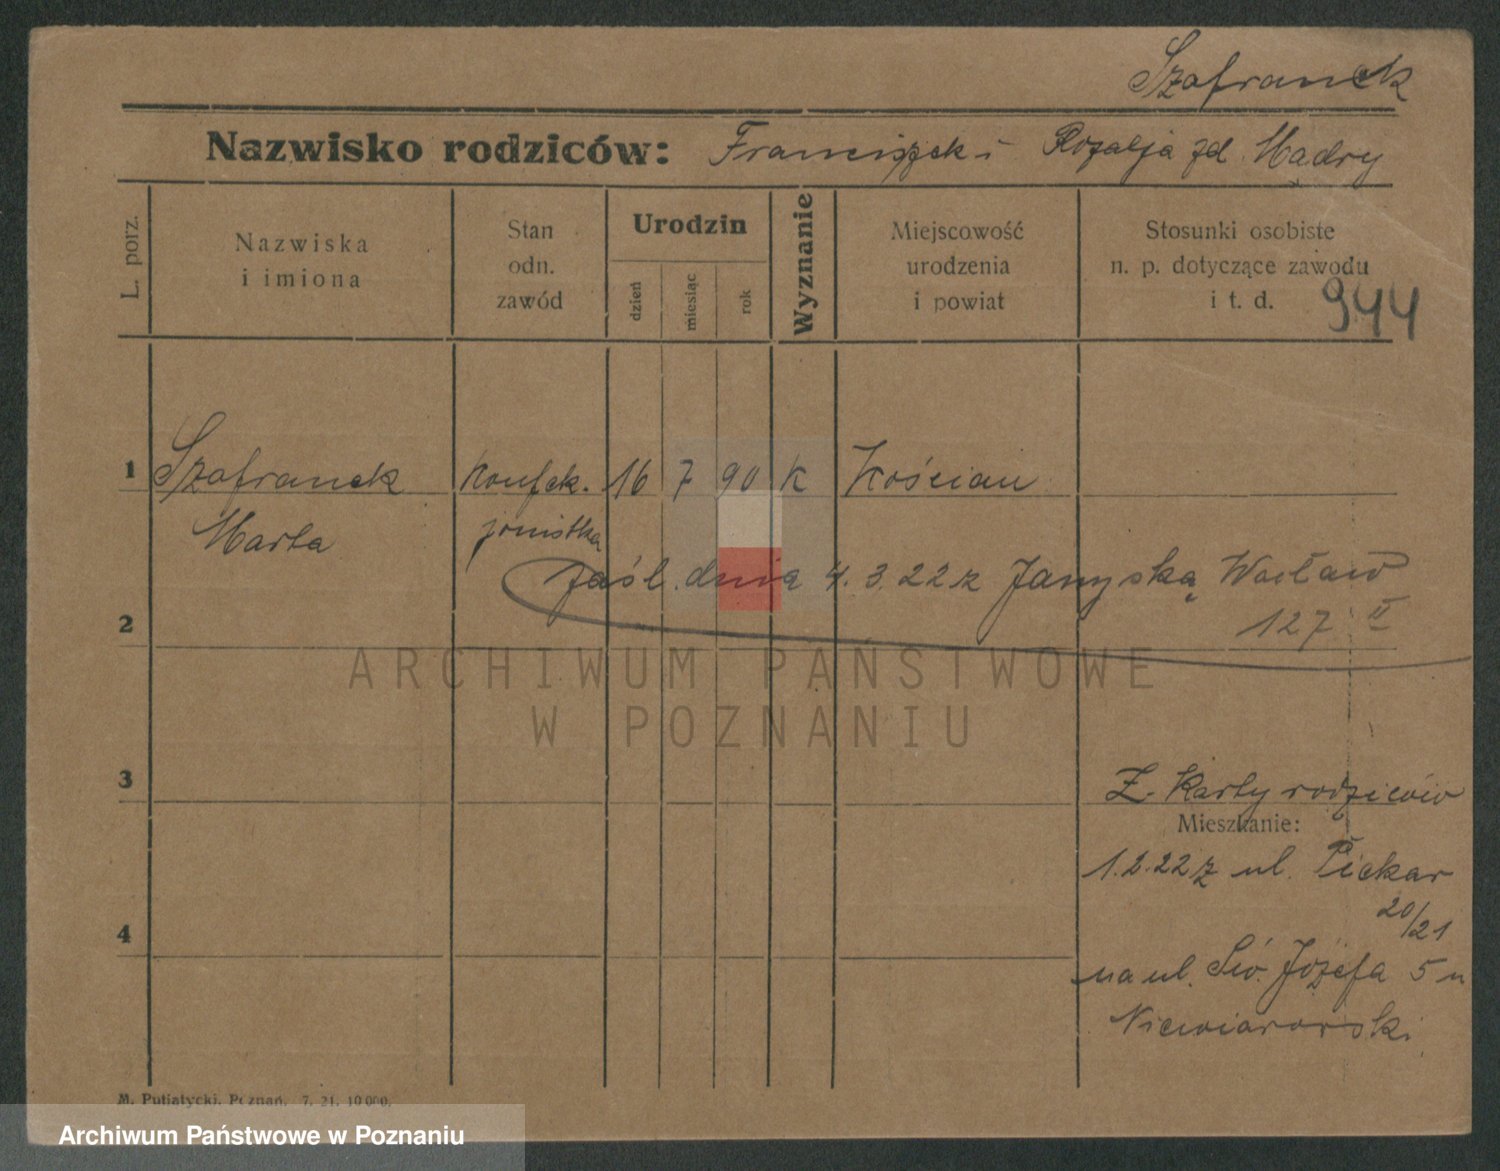 Szafranek
Nazwisko rodziców: Franciszek i Rozalja zd. Mądry
L. porz.
Nazwiska
i imiona
Stan
odn.
zawód
Urodzin
dzień
miesiąc
rok
Wyznanie
Miejscowość
urodzenia
i powiat
Stosunki osobiste
n. p. dotyczące zawodu
i t. d.
944
1 Szafranek konfek. 16 7 90 K Kościan
Marta jonistka
zaśl. dnia 4.3.22 z Janyską Wacław
2 127 II
ARCHIWUM PAŃSTWOWE
W POZNANIU
3 Z. Karty rodziców
Mieszkanie:
1.2.22 z ul. Piekar
20/21
4
na ul. Św. Józefa 5 u
Niewiarowski
M. Putiatycki, Poznań. 7. 21. 10 000.
Archiwum Państwowe w Poznaniu